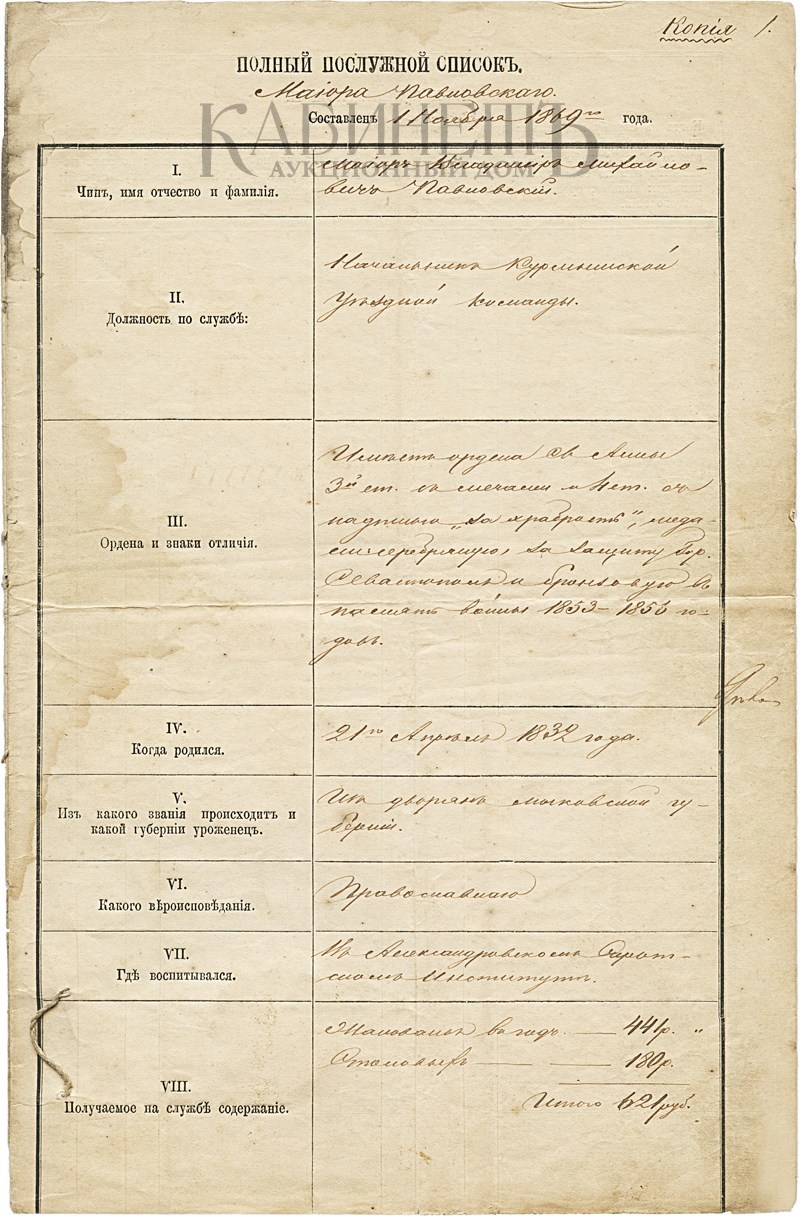 Копія 1.
ПОЛНЫЙ ПОСЛУЖНОЙ СПИСОКЪ.
Маіора Павловскаго.
Составленъ 1 Ноября 1869го года.
КАБИНЕТЪ
АУКЦИОННЫЙ ДОМ
I.
Чинъ, имя отчество и фамилія.
Маіоръ Владиміръ Михайло-
вичъ Павловскій.
II.
Должность по службѣ:
Начальникъ Курмышской
Уѣздной Команды.
III.
Ордена и знаки отличія.
Имѣетъ ордена Св Анны
3й ст. съ мечами и 4 ст. съ
надписью „за храбрость", меда-
ли: серебряную, за защиту
Севастополя и бронзовую въ
память войны 1853-1856 го-
довъ.
IV.
Когда родился.
21го Апрѣля 1832 года.
V.
Изъ какого званія происходитъ и
какой губерніи уроженецъ.
Изъ дворянъ московской гу-
берніи.
VI.
Какого вѣроисповѣданія.
Православнаго
VII.
Гдѣ воспитывался.
Въ Александровскомъ Сирот-
скомъ Институтѣ.
VIII.
Получаемое на службѣ содержаніе.
Жалованья въ годъ — 441р. „
Столовыхъ — — 180р.
Итого 621 руб.